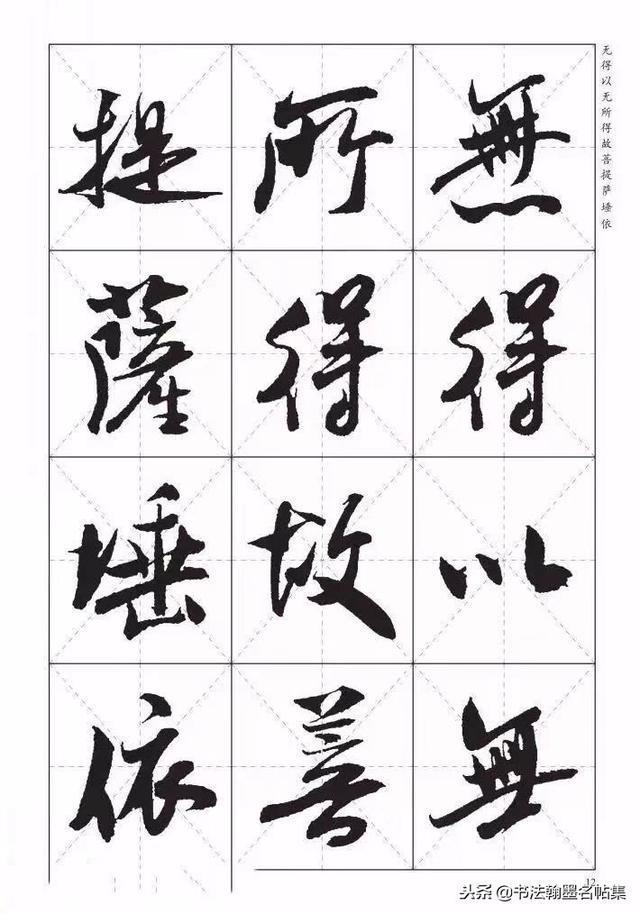 无得以无所得故菩提萨埵依
無得以無
所得故菩
提薩埵依
12
头条@书法翰墨名帖集